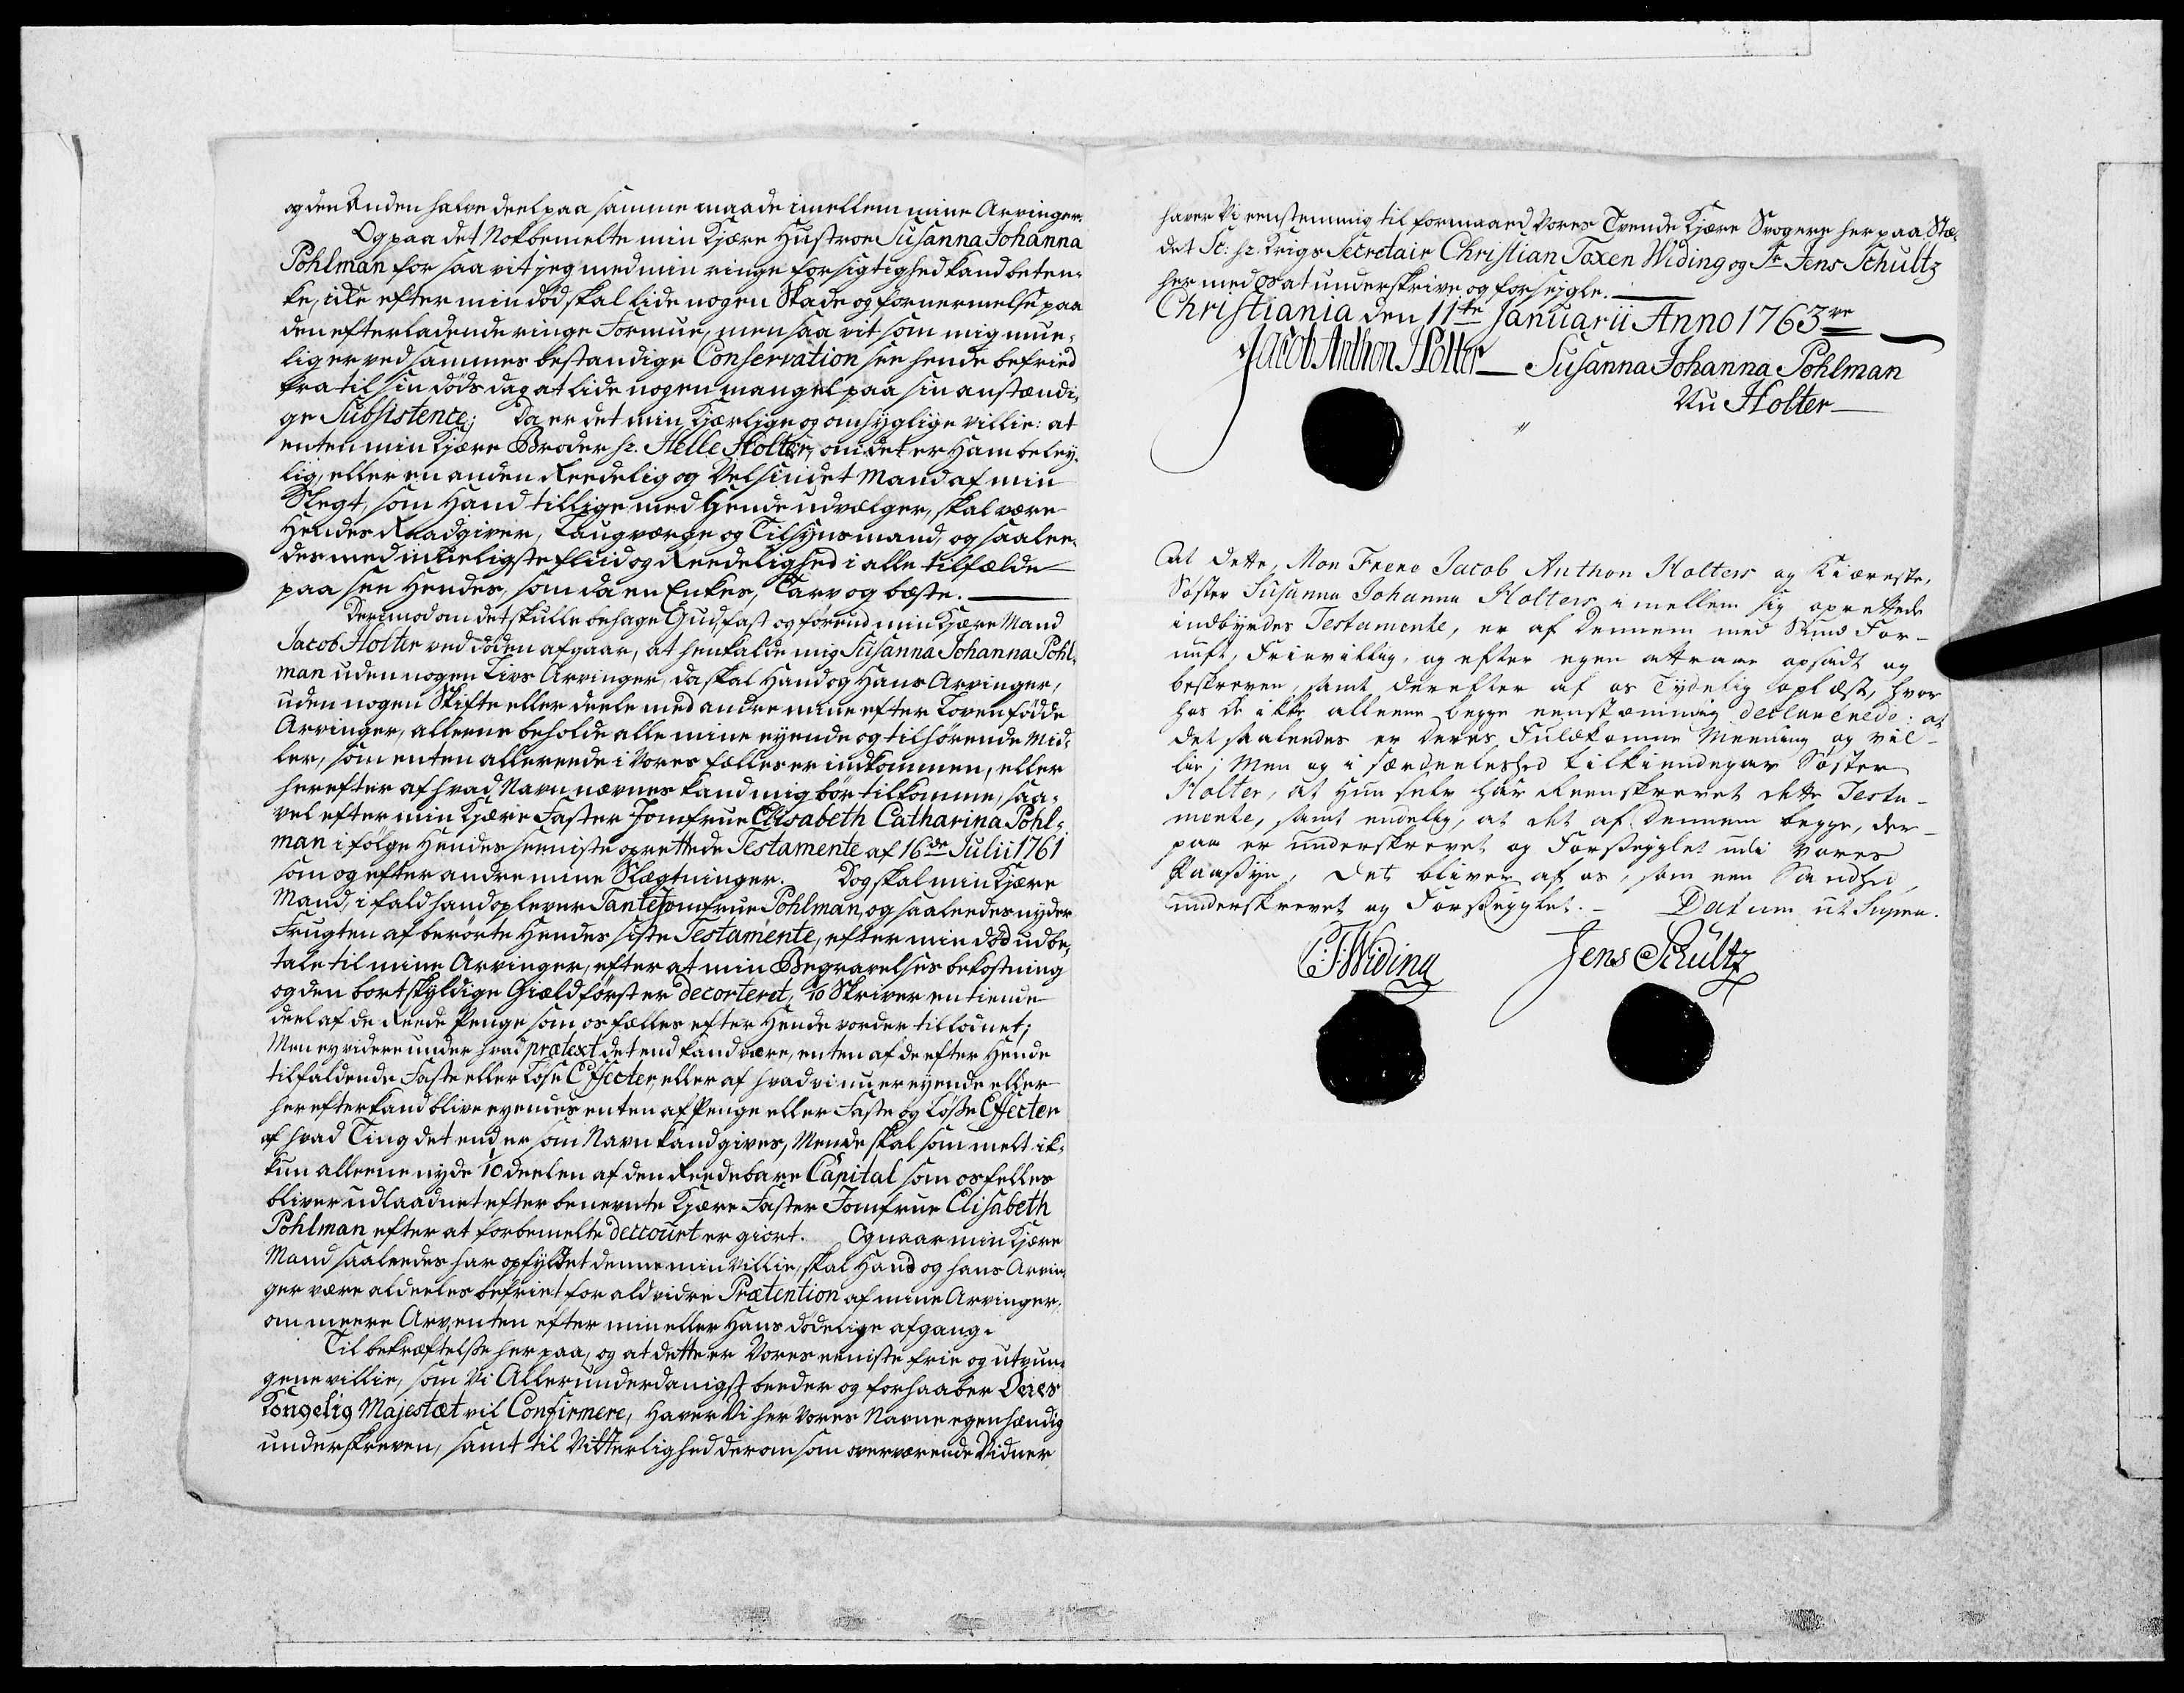 og den Anden halve deel paa samme maade imellem mine Arvinger.
Og paa det Nokbemelte min Kjære Hustroe Susanna Johanna
Pohlman for saa vit jeg med min ringe forsigtighed kand beten-
ke, icke efter min död skal lide nogen Skade og fornermelse paa
den efterladende ringe Formue, men saa vit som mig mue-
lig er ved sammes bestandige Conservation see hende befried
fra til sin döds dag at lide nogen mangel paa sin anstændi-
ge Subsistence; Da er det min Kjærlige og omhyglige villie: at
enten min Kjære Broder hr. Helle Holter, om det er Ham beley-
lig, eller en anden Reedelig og Velsindet Mand af min
Slegt, som Hand tillige med Hende udvælger, skal være
Hendes Raadgiver, Laugværge og Tilsynsmand, og saalee-
des med mueligste fliid og Reedelighed i alle tilfælde
paa see Hendes, som da en Enkes, Tarv og beste.
Derimod om det skulle behage Gud, fast og förend min Kjære Mand
Jacob Holter ved döden afgaar, at henkalde mig Susanna Johanna Pohl-
man uden nogen Livs Arvinger, da skal Hand og Hans Arvinger,
uden nogen Skifte eller deele med andre mine efter Loven födde
Arvinger, alleene beholde alle mine eyende og tilhörende Mid-
ler, som enten allereede i Vores fælles er indkommen, eller
herefter af hvad Navn nævnes kand mig bör tilkomme, saa-
vel efter min Kjære Faster Jomfrue Elisabeth Catharina Pohl-
man i fölge Hendes seeniste oprettede Testamente af 16de Julii 1761
som og efter andre mine Slægtninger. Dog skal min Kjære
Mand, i fald hand oplever Tante Jomfrue Pohlman, og saaleedes nyder
Frugten af berörte Hendes siste Testamente, efter min död udbe-
tale til mine Arvinger, efter at min Begravelses bekostning
og den bortskyldige Giæld först er decorteret, 1/10 Skriver en tiende
deel af de Reede Penge som os fælles efter Hende vorder tillodnet;
Men ey videre under hvad prætext det end kand være, enten af de efter Hende
tilfaldende Faste eller Löse Effecter, eller af hvad vi nu er eyende eller
herefter kand blive eyendes enten af Penge eller Faste og Lösse Effecter
af hvad Ting det end er som Navn kand gives, Mens de skal som melt ik-
kun alleene nyde 1/10 deelen af den Reedebare Capital som os felles
bliver udlaadnet efter benevnte Kjære Faster Jomfrue Elisabeth
Pohlman efter at forbemelte deccourt er giort. Og naar min Kjære
Mand saaleedes har opfyldet denne min Villie, skal Hand og hans Arvin-
ger være aldeeles befriet for ald vidre Prætention af mine Arvinger,
om meere Arv, enten efter min eller Hans dödelige afgang.
Til bekræftelsse her paa, og at dette er Vores eeniste frie og utvun-
gene villie, som Vi Allerunderdanigst beeder og forhaaber Deres
Kongelig Majestæt vil Confirmere, Haver Vi her Vores Navne egenhændig
underskreven, samt til Vitterlighed derom som overværende Vidner
haver Vi eenstemmig til formaaed Vores Tvende Kjære Svogere her paa Stæ-
det Sr: hr. Krigs Secretair Christian Taxen Widing og Sr. Jens Schultz
her med os at underskrive og forseigle.
Christiania den 11te Januarii Anno 1763ve
Jacob Anthon Holter Susanna Johanna Pohlman
Nu Holter
At dette, Mon Frere Jacob Anthon Holters og Kiæreste,
Söster Susanna Johanna Holters imellem sig oprettede
indbyrdes Testamente, er af dennem med Sund For-
nuft, Frievillig, og efter egen attraae opsadt og
beskreven, samt derefter af os Tydelig oplæst, hvor
hos de ikke alleene begge eenstemmig declarerede: at
det saaleedes er deres Fuldkomne Meening og vil-
lie; Men og i særdeeleshed tilkiendegav Söster
Holter, at Hun selv har Reenskrevet dette Testa-
mente, samt endelig, at det af dennem begge, der-
paa er underskrevet og Forseyglet udi Vores
Paasyn, det bliver af os, som een Sandhed,
underskrevet og Forseyglet. Datum ut Supra.
C:T:Widing Jens Schultz